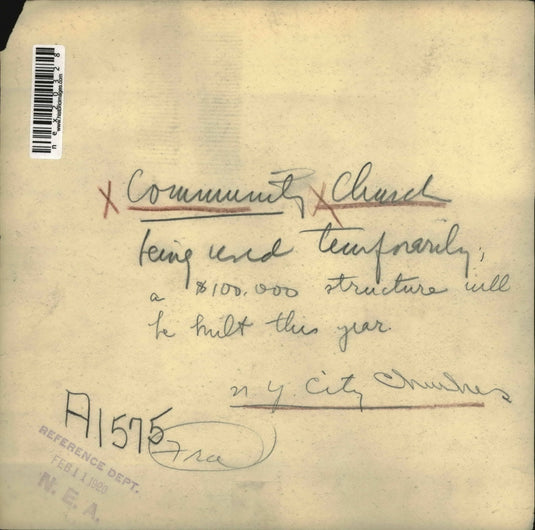 nex20328
www.historicimages.com
X Community X Church
being used temporarily;
a $100.000 structure will
be built this year.
N Y. City Churches
A1575
REFERENCE DEPT.
N. E. A.